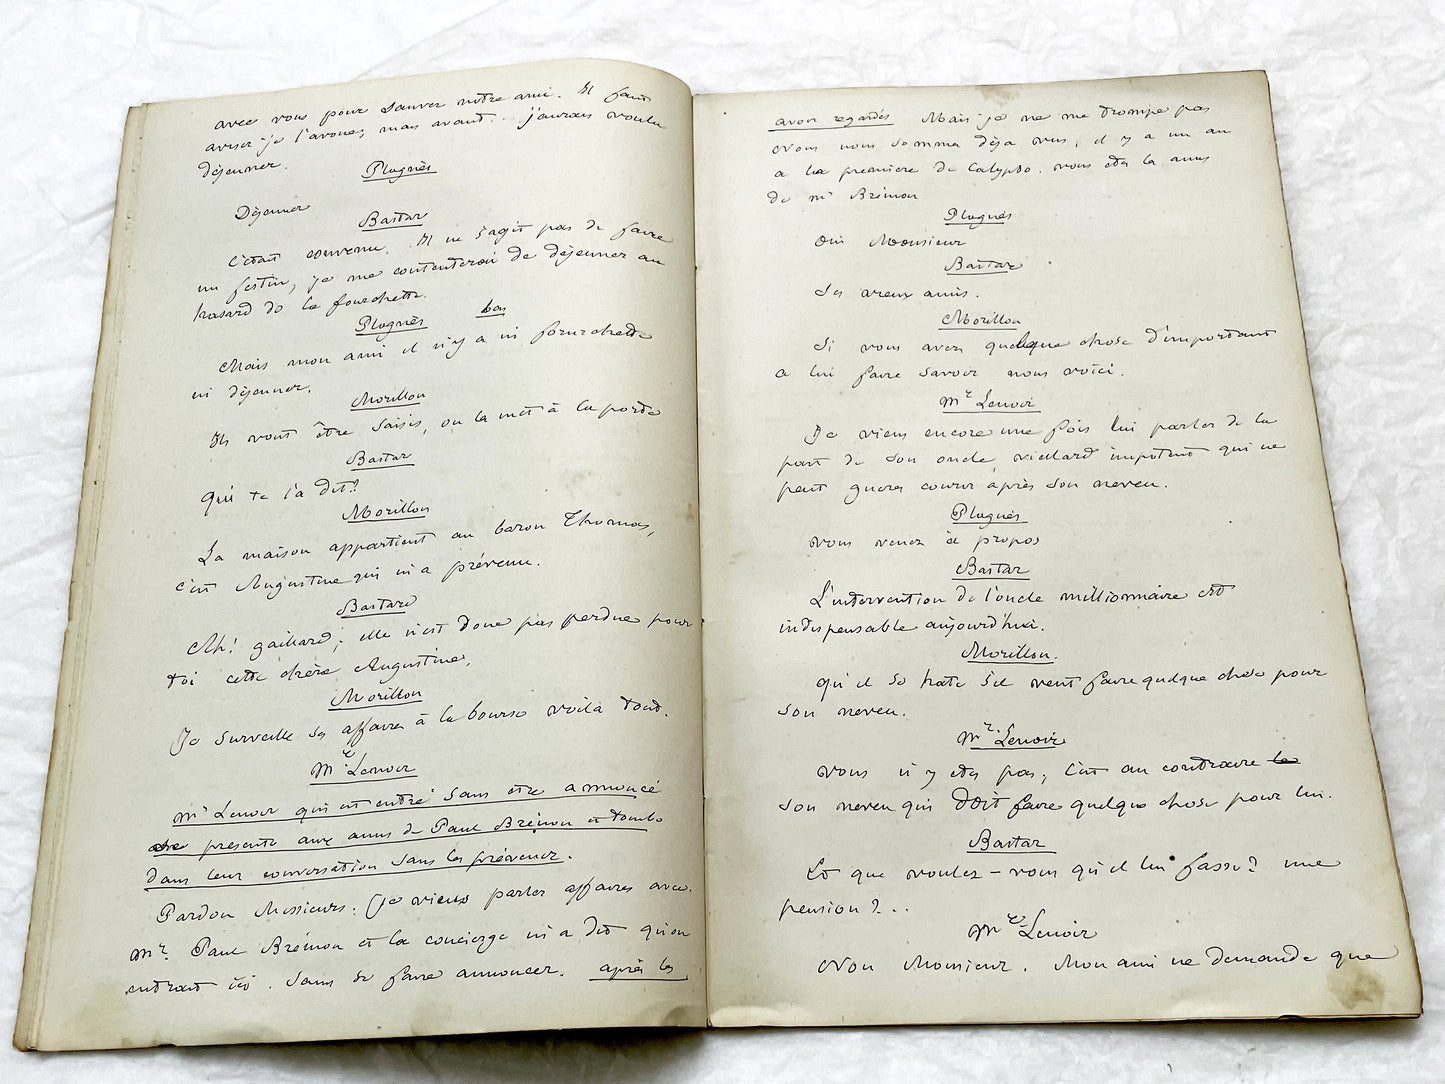 avec vous pour sauver notre ami. Il faut
aviser je l'avoue, mais avant... j'aurais voulu
déjeuner.
Plugnès
Déjeuner
Bastar
C'était convenu. Il ne s'agit pas de faire
un festin, je me contenterai de déjeuner au
hasard de la fourchette.
Plugnès bas
Mais mon ami il n'y a ni fourchette
ni déjeuner.
Morillon
Ils vont être saisis, on la met à la porte
Bastar
Qui te l'a dit?
Morillon
La maison appartient au baron Thomas,
c'est Augustine qui m'a prévenu.
Bastard
Ah! gaillard, elle n'est donc pas perdue pour
toi cette chère Augustine.
Morillon
Je surveille ses affaires à la bourse voilà tout.
Mr Lenoir
Mr Lenoir qui est entré sans etre annoncé
se présente aux amis de Paul Brémon et tombe
dans leur conversation sans les prévenir.
Pardon Messieurs. Je viens parler affaires avec
Mr. Paul Brémon et la concierge m'a dit qu'on
entrait ici. Sans se faire annoncer. après les
avoir regardés Mais je ne me trompe pas
Nous nous somma déja vus, il y a un an
a la premiere de Calypso. vous etes les amis
de mr Brémon
Plugnés
Oui Monsieur
Bastar
Ses vieux amis.
Morillon
Si vous avez quelque chose d'important
a lui faire savoir nous voici.
Mr Lenoir
Je viens encore une fois lui parler de la
part de son oncle vieillard impotent qui ne
peut guere courir après son neveu.
Plugnès
Vous venez à propos
Bastar
L'intervention de l'oncle millionnaire est
indispensable aujourd'hui.
Morillon.
Qu'il se hate s'il veut faire quelque chose pour
son neveu.
Mr Lenoir
Vous n'y etes pas, c'est au contraire le
son neveu qui doit faire quelque chose pour lui.
Bastar
Et que voulez-vous qu'il lui fasse? une
pension?..
Mr Lenoir
Non Monsieur. Mon ami ne demande que